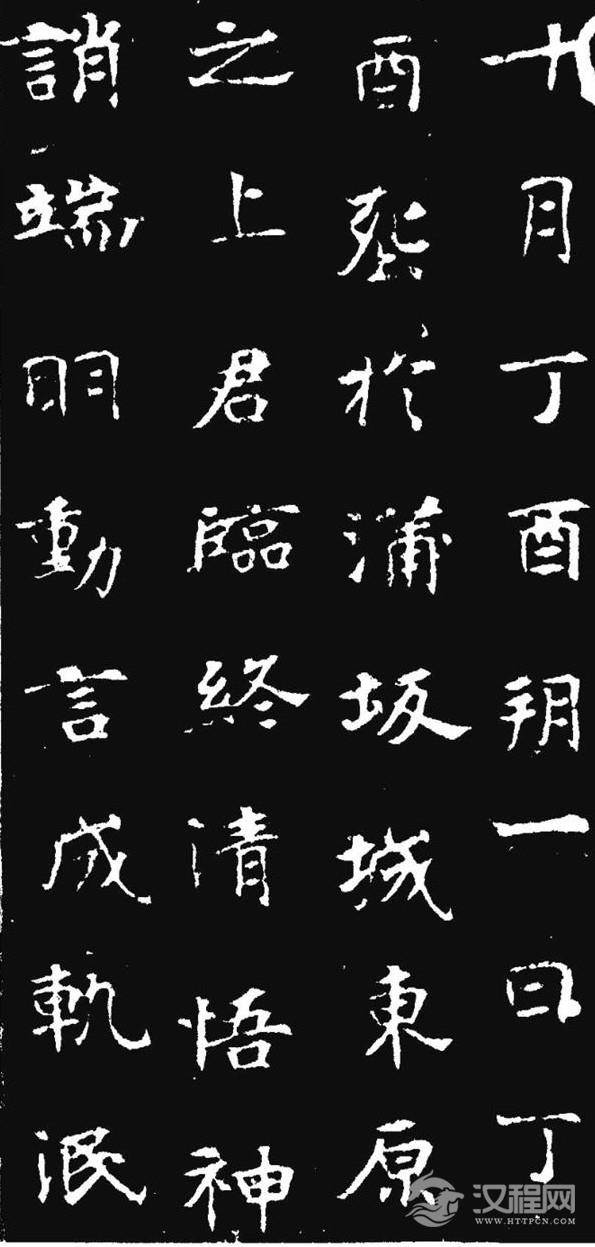 十月丁酉朔一日丁
酉葬於蒲坂城東原
之上君臨終清悟神
誚端明動言成軌泯
汉程网
WWW.HTTPCN.COM